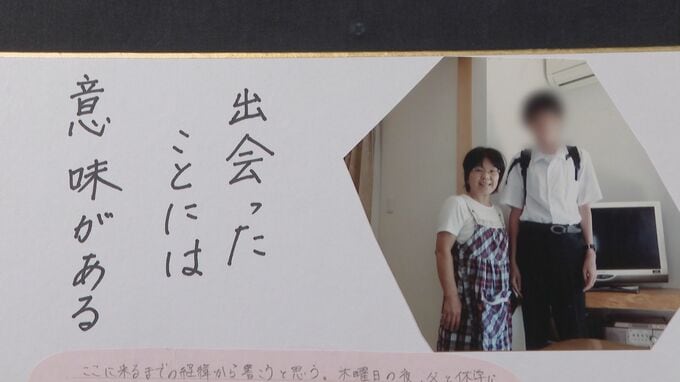 出会った
ことには
意味がある
ここに来るまでの経緯から書こうと思う。木曜日の夜、父と